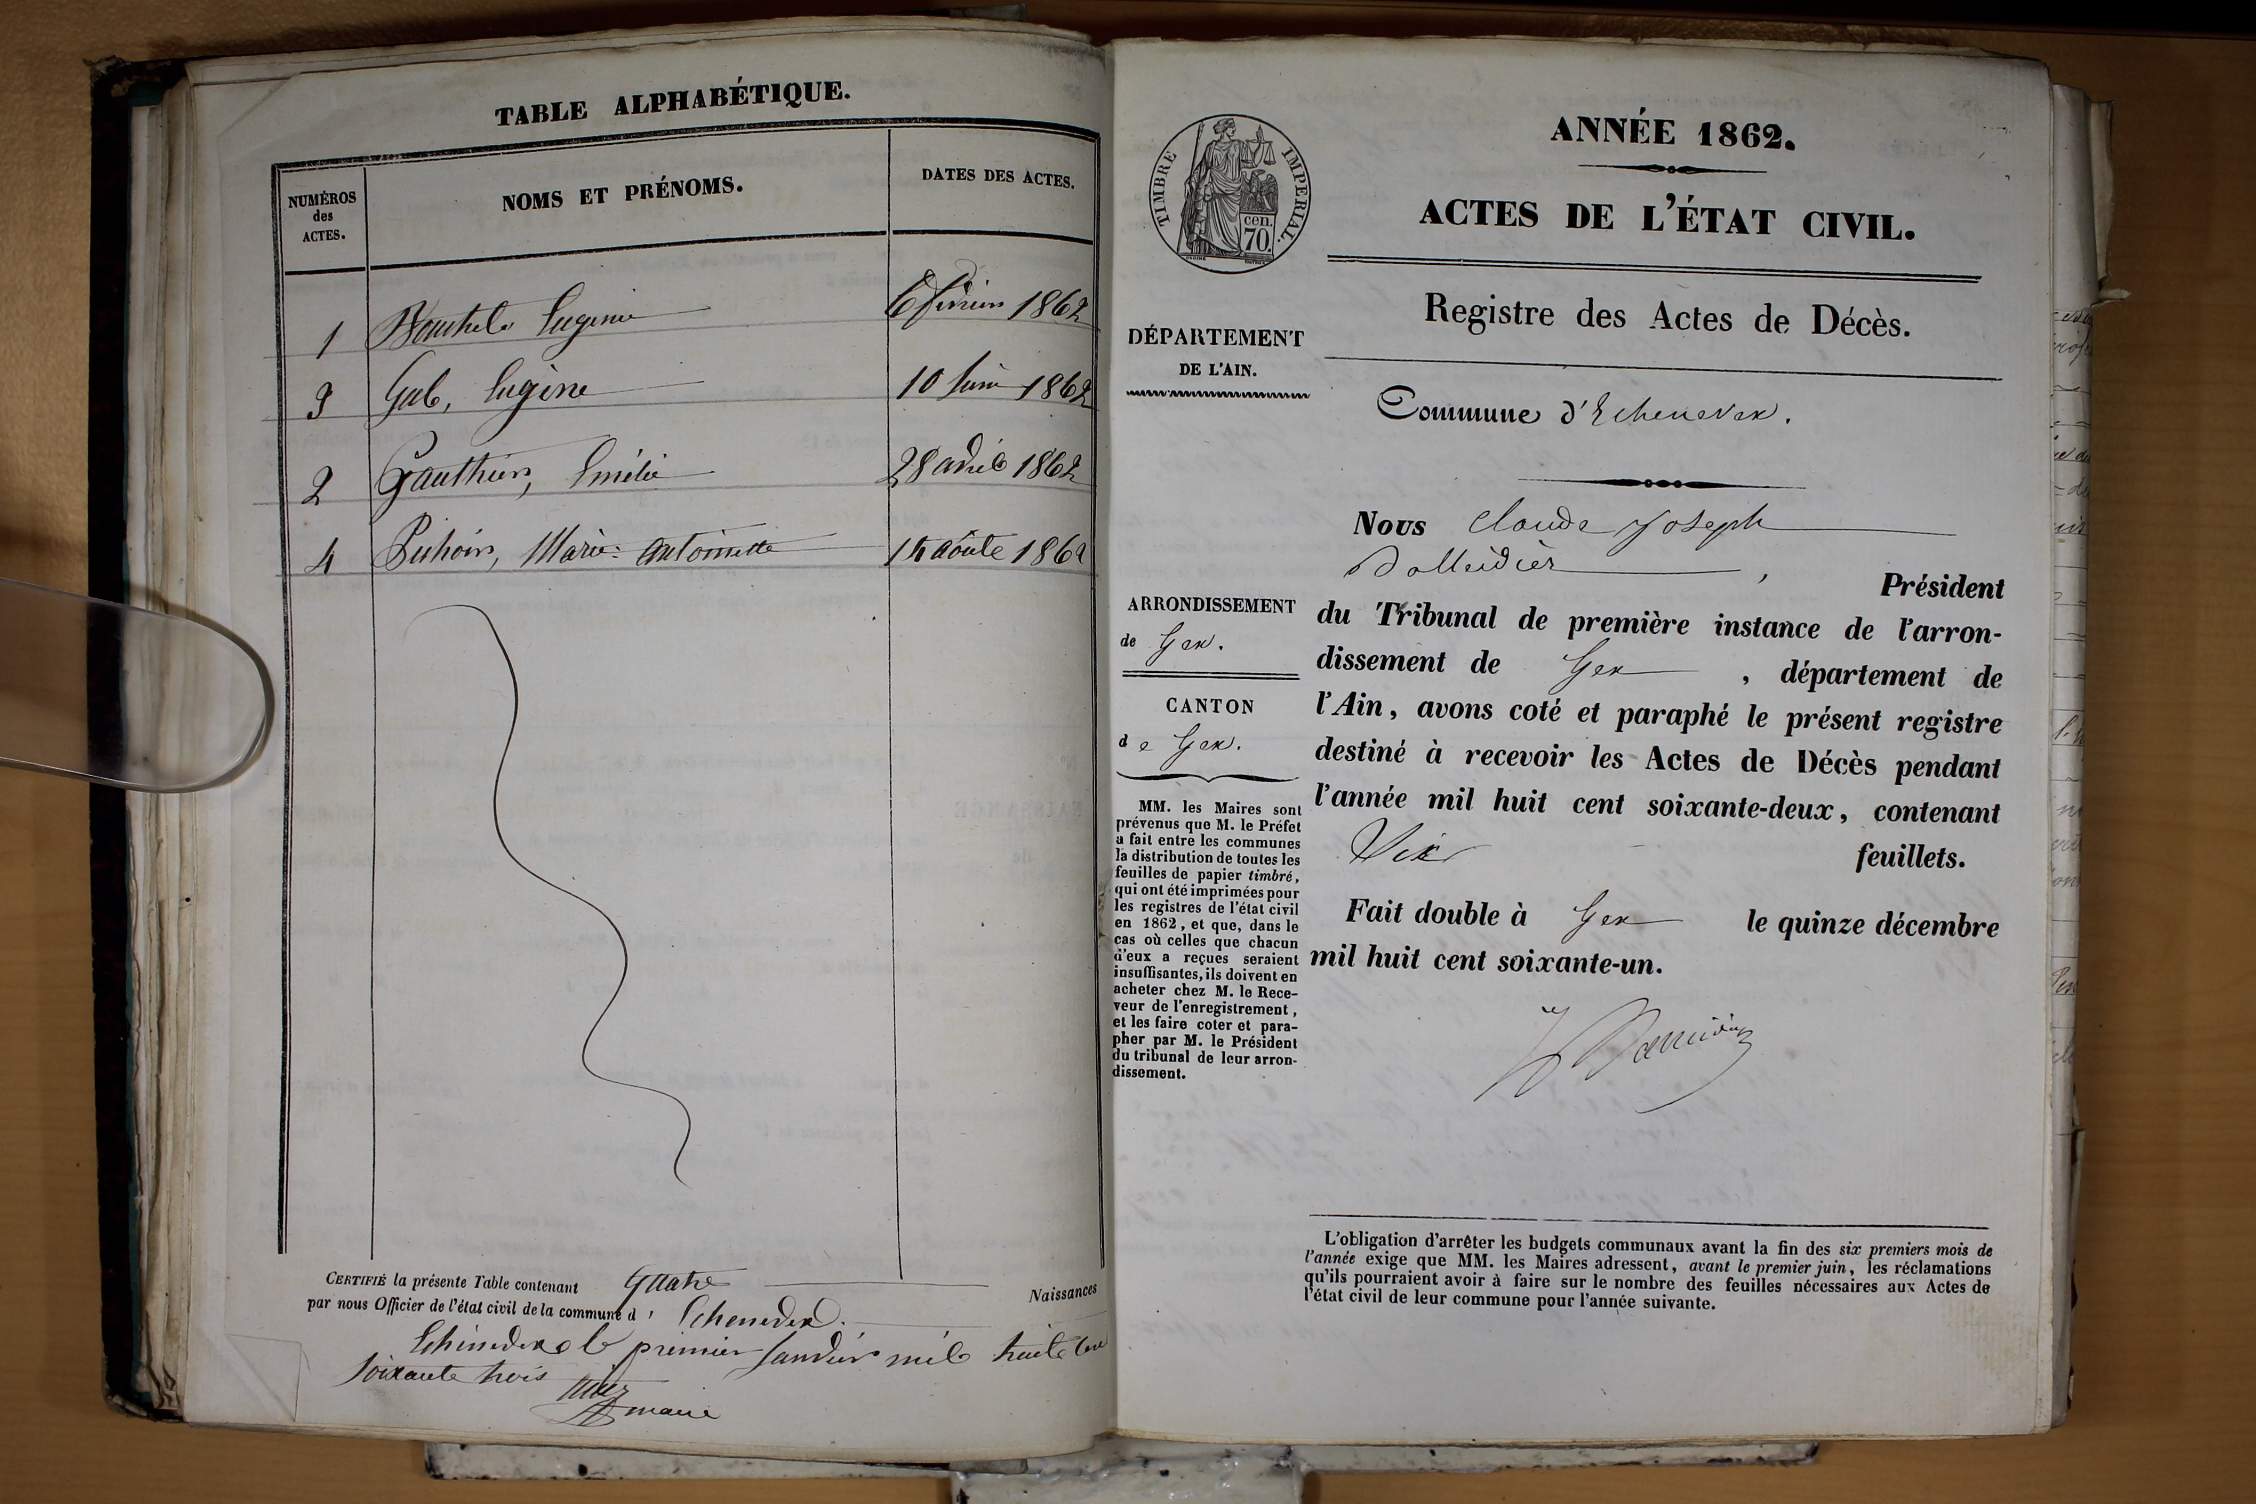 TABLE ALPHABÉTIQUE.
NUMÉROS
des
ACTES.
NOMS ET PRÉNOMS.
DATES DES ACTES.
1 Eugenie 6 février 1862
3 Gal, Eugène 10 Juin 1862
2 Gauthier, Emélie 28 avril 1862
4 Marie: antoinette aôute 1862
CERTIFIÉ la présente Table contenant quatre Naissances
par nous Officier de l'état civil de la commune d' Echenevex.
Echenevex le premier Janvier mil huit cent
soixante trois
maire
TIMBRE IMPERIAL.
cen.
70.
DÉPARTEMENT
DE L'AIN.
ARRONDISSEMENT
de Gex.
CANTON
de Gex.
MM. les Maires sont
prévenus que M. le Préfet
a fait entre les communes
la distribution de toutes les
feuilles de papier timbré,
qui ont été imprimées pour
les registres de l'état civil
en 1862, et que, dans le
cas où celles que chacun
d'eux a reçues seraient
insuffisantes, ils doivent en
acheter chez M. le Rece-
veur de l'enregistrement,
et les faire coter et para-
pher par M. le Président
du tribunal de leur arron-
dissement.
ANNÉE 1862.
ACTES DE L'ÉTAT CIVIL.
Registre des Actes de Décès.
Commune d'Echenevex.
Nous Claude Joseph
, Président
du Tribunal de première instance de l'arron-
dissement de Gex , département de
l'Ain, avons coté et paraphé le présent registre
destiné à recevoir les Actes de Décès pendant
l'année mil huit cent soixante-deux, contenant
feuillets.
Fait double à Gex le quinze décembre
mil huit cent soixante-un.
L'obligation d'arrêter les budgets communaux avant la fin des six premiers mois de
l'année exige que MM. les Maires adressent, avant le premier juin, les réclamations
qu'ils pourraient avoir à faire sur le nombre des feuilles nécessaires aux Actes de
l'état civil de leur commune pour l'année suivante.